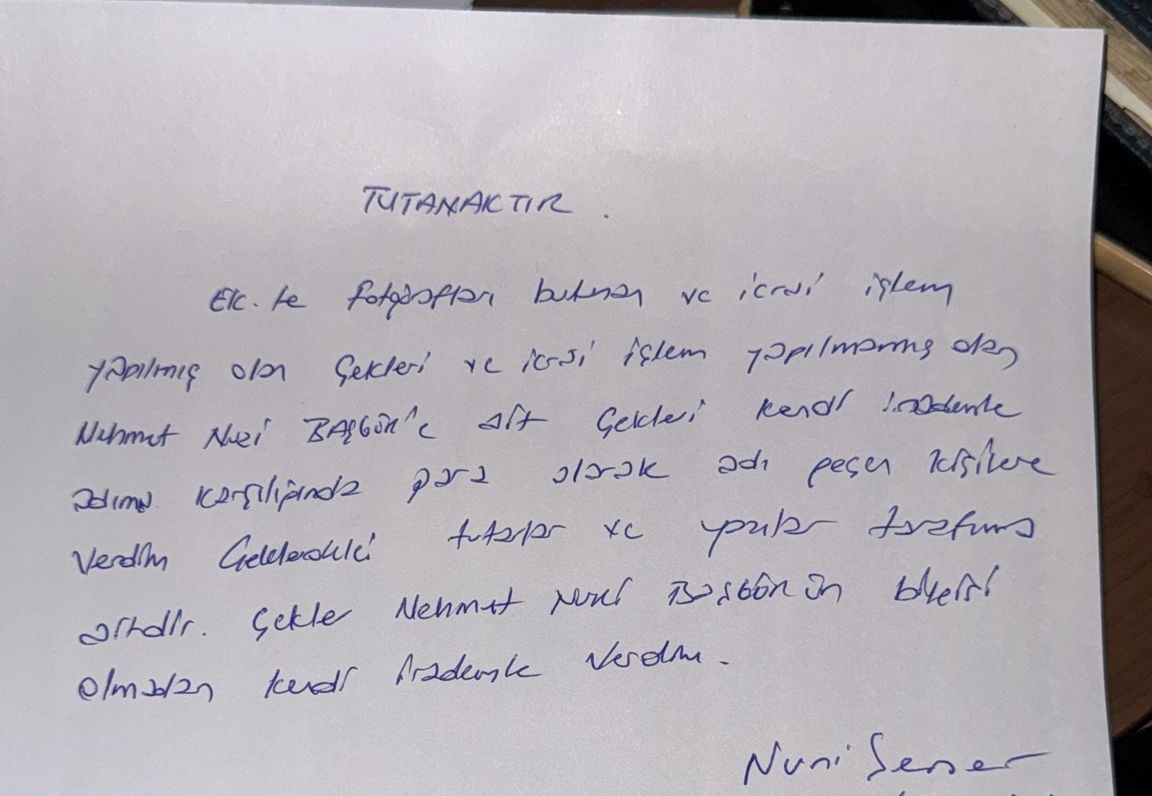 TUTANAKTIR.
Ek. te fotoğrafları bulunan ve icrai işlem
yapılmış olan Çekleri ve icrai işlem yapılmamış olan
Mehmet Nuri BAŞGÖR'e ait Çekleri kendi irademle
karşılığında para olarak adı geçen kişilere
Verdim Çeklerdeki tutarlar ve tarafıma
aittir. Çekler Mehmet Nuri ün bilgisi
olmadan kendi irademle Verdim.
Nuri